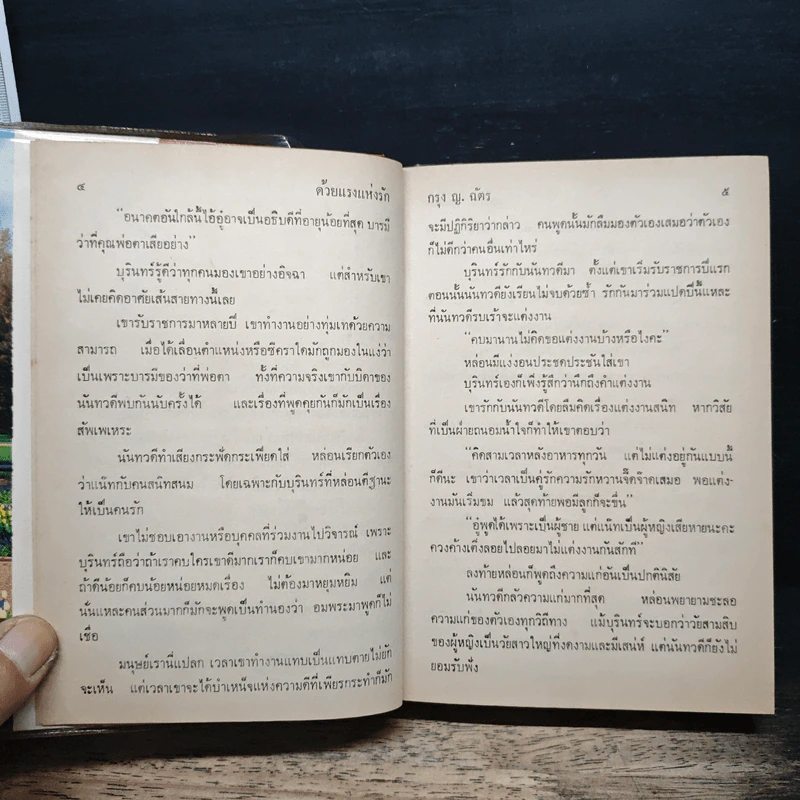 ๔ ด้วยแรงแห่งรัก
"อนาคตอันใกล้นี้ไอ้อู๋อาจเป็นอธิบดีที่อายุน้อยที่สุด บารมี
ว่าที่คุณพ่อตาเสียอย่าง"
บุรินทร์รู้ดีว่าทุกคนมองเขาอย่างอิจฉา แต่สำหรับเขา
ไม่เคยคิดอาศัยเส้นสายทางนี้เลย
เขารับราชการมาหลายปี เขาทำงานอย่างทุ่มเทด้วยความ
สามารถ เมื่อได้เลื่อนตำแหน่งหรือซีคราใดมักถูกมองในแง่ว่า
เป็นเพราะบารมีของว่าที่พ่อตา ทั้งที่ความจริงเขากับบิดาของ
นันทวดีพบกันนับครั้งได้ และเรื่องที่พูดคุยกันก็มักเป็นเรื่อง
สัพเพเหระ
นันทวดีทำเสียงกระฟัดกระเฟียดใส่ หล่อนเรียกตัวเอง
ว่าแน๊ทกับคนสนิทสนม โดยเฉพาะกับบุรินทร์ที่หล่อนตีฐานะ
ให้เป็นคนรัก
เขาไม่ชอบเอางานหรือบุคคลที่ร่วมงานไปวิจารณ์ เพราะ
บุรินทร์ถือว่าถ้าเราคบใครเขาดีมากเราก็คบเขามากหน่อย และ
ถ้าดีน้อยก็คบน้อยหน่อยหมดเรื่อง ไม่ต้องมาหยุมหยิม แต่
นั่นแหละคนส่วนมากก็มักจะพูดเป็นทำนองว่า อมพระมาพูดก็ไม่
เชื่อ
มนุษย์เรานี่แปลก เวลาเขาทำงานแทบเป็นแทบตายไม่ยัก
จะเห็น แต่เวลาเขาจะได้บำเหน็จแห่งความดีที่เพียรกระทำก็มัก
กรุง ญ. ฉัตร ๕
จะมีปฏิกิริยาว่ากล่าว คนพูดนั้นมักลืมมองตัวเองเสมอว่าตัวเอง
ก็ไม่ดีกว่าคนอื่นเท่าไหร่
บุรินทร์รักกับนันทวดีมา ตั้งแต่เขาเริ่มรับราชการปีแรก
ตอนนั้นนันทวดียังเรียนไม่จบด้วยซ้ำ รักกันมาร่วมแปดปีนี้แหละ
ที่นันทวดีรบเร้าจะแต่งงาน
"คบมานานไม่คิดขอแต่งงานบ้างหรือไงคะ"
หล่อนมีแง่งอนประชดประชันใส่เขา
บุรินทร์เองก็เพิ่งรู้สึกว่านึกถึงคำแต่งงาน
เขารักกับนันทวดีโดยลืมคิดเรื่องแต่งงานสนิท หากวิสัย
ที่เป็นฝ่ายถนอมน้ำใจก็ทำให้เขาตอบว่า
"คิดสามเวลาหลังอาหารทุกวัน แต่ไม่แต่งอยู่กันแบบนี้
ก็ดีนะ เขาว่าเวลาเป็นคู่รักความรักหวานจี๊ดจ๊าดเสมอ พอแต่ง-
งานมันเริ่มขม แล้วสุดท้ายพอมีลูกก็จะขื่น"
"อู๋พูดได้เพราะเป็นผู้ชาย แต่แน๊ทเป็นผู้หญิงเสียหายนะคะ
ควงค้างเติ่งลอยไปลอยมาไม่แต่งงานกันสักที"
ลงท้ายหล่อนก็พูดถึงความแก่อันเป็นปกตินิสัย
นันทวดีกลัวความแก่มากที่สุด หล่อนพยายามชะลอ
ความแก่ของตัวเองทุกวิถีทาง แม้บุรินทร์จะบอกว่าวัยสามสิบ
ของผู้หญิงเป็นวัยสาวใหญ่ที่งดงามและมีเสน่ห์ แต่นันทวดีก็ยังไม่
ยอมรับฟัง